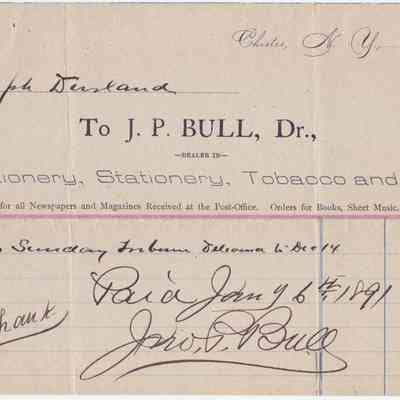 Chester, N. Y.
ph Durland
To J. P. BULL, Dr.,
—DEALER IN—
tionery, Stationery, Tobacco and
for all Newspapers and Magazines Received at the Post-Office. Orders for Books, Sheet Music,
Sunday Tribune to Dec 14
Paid Jany 6th 1891
Jno. P. Bull